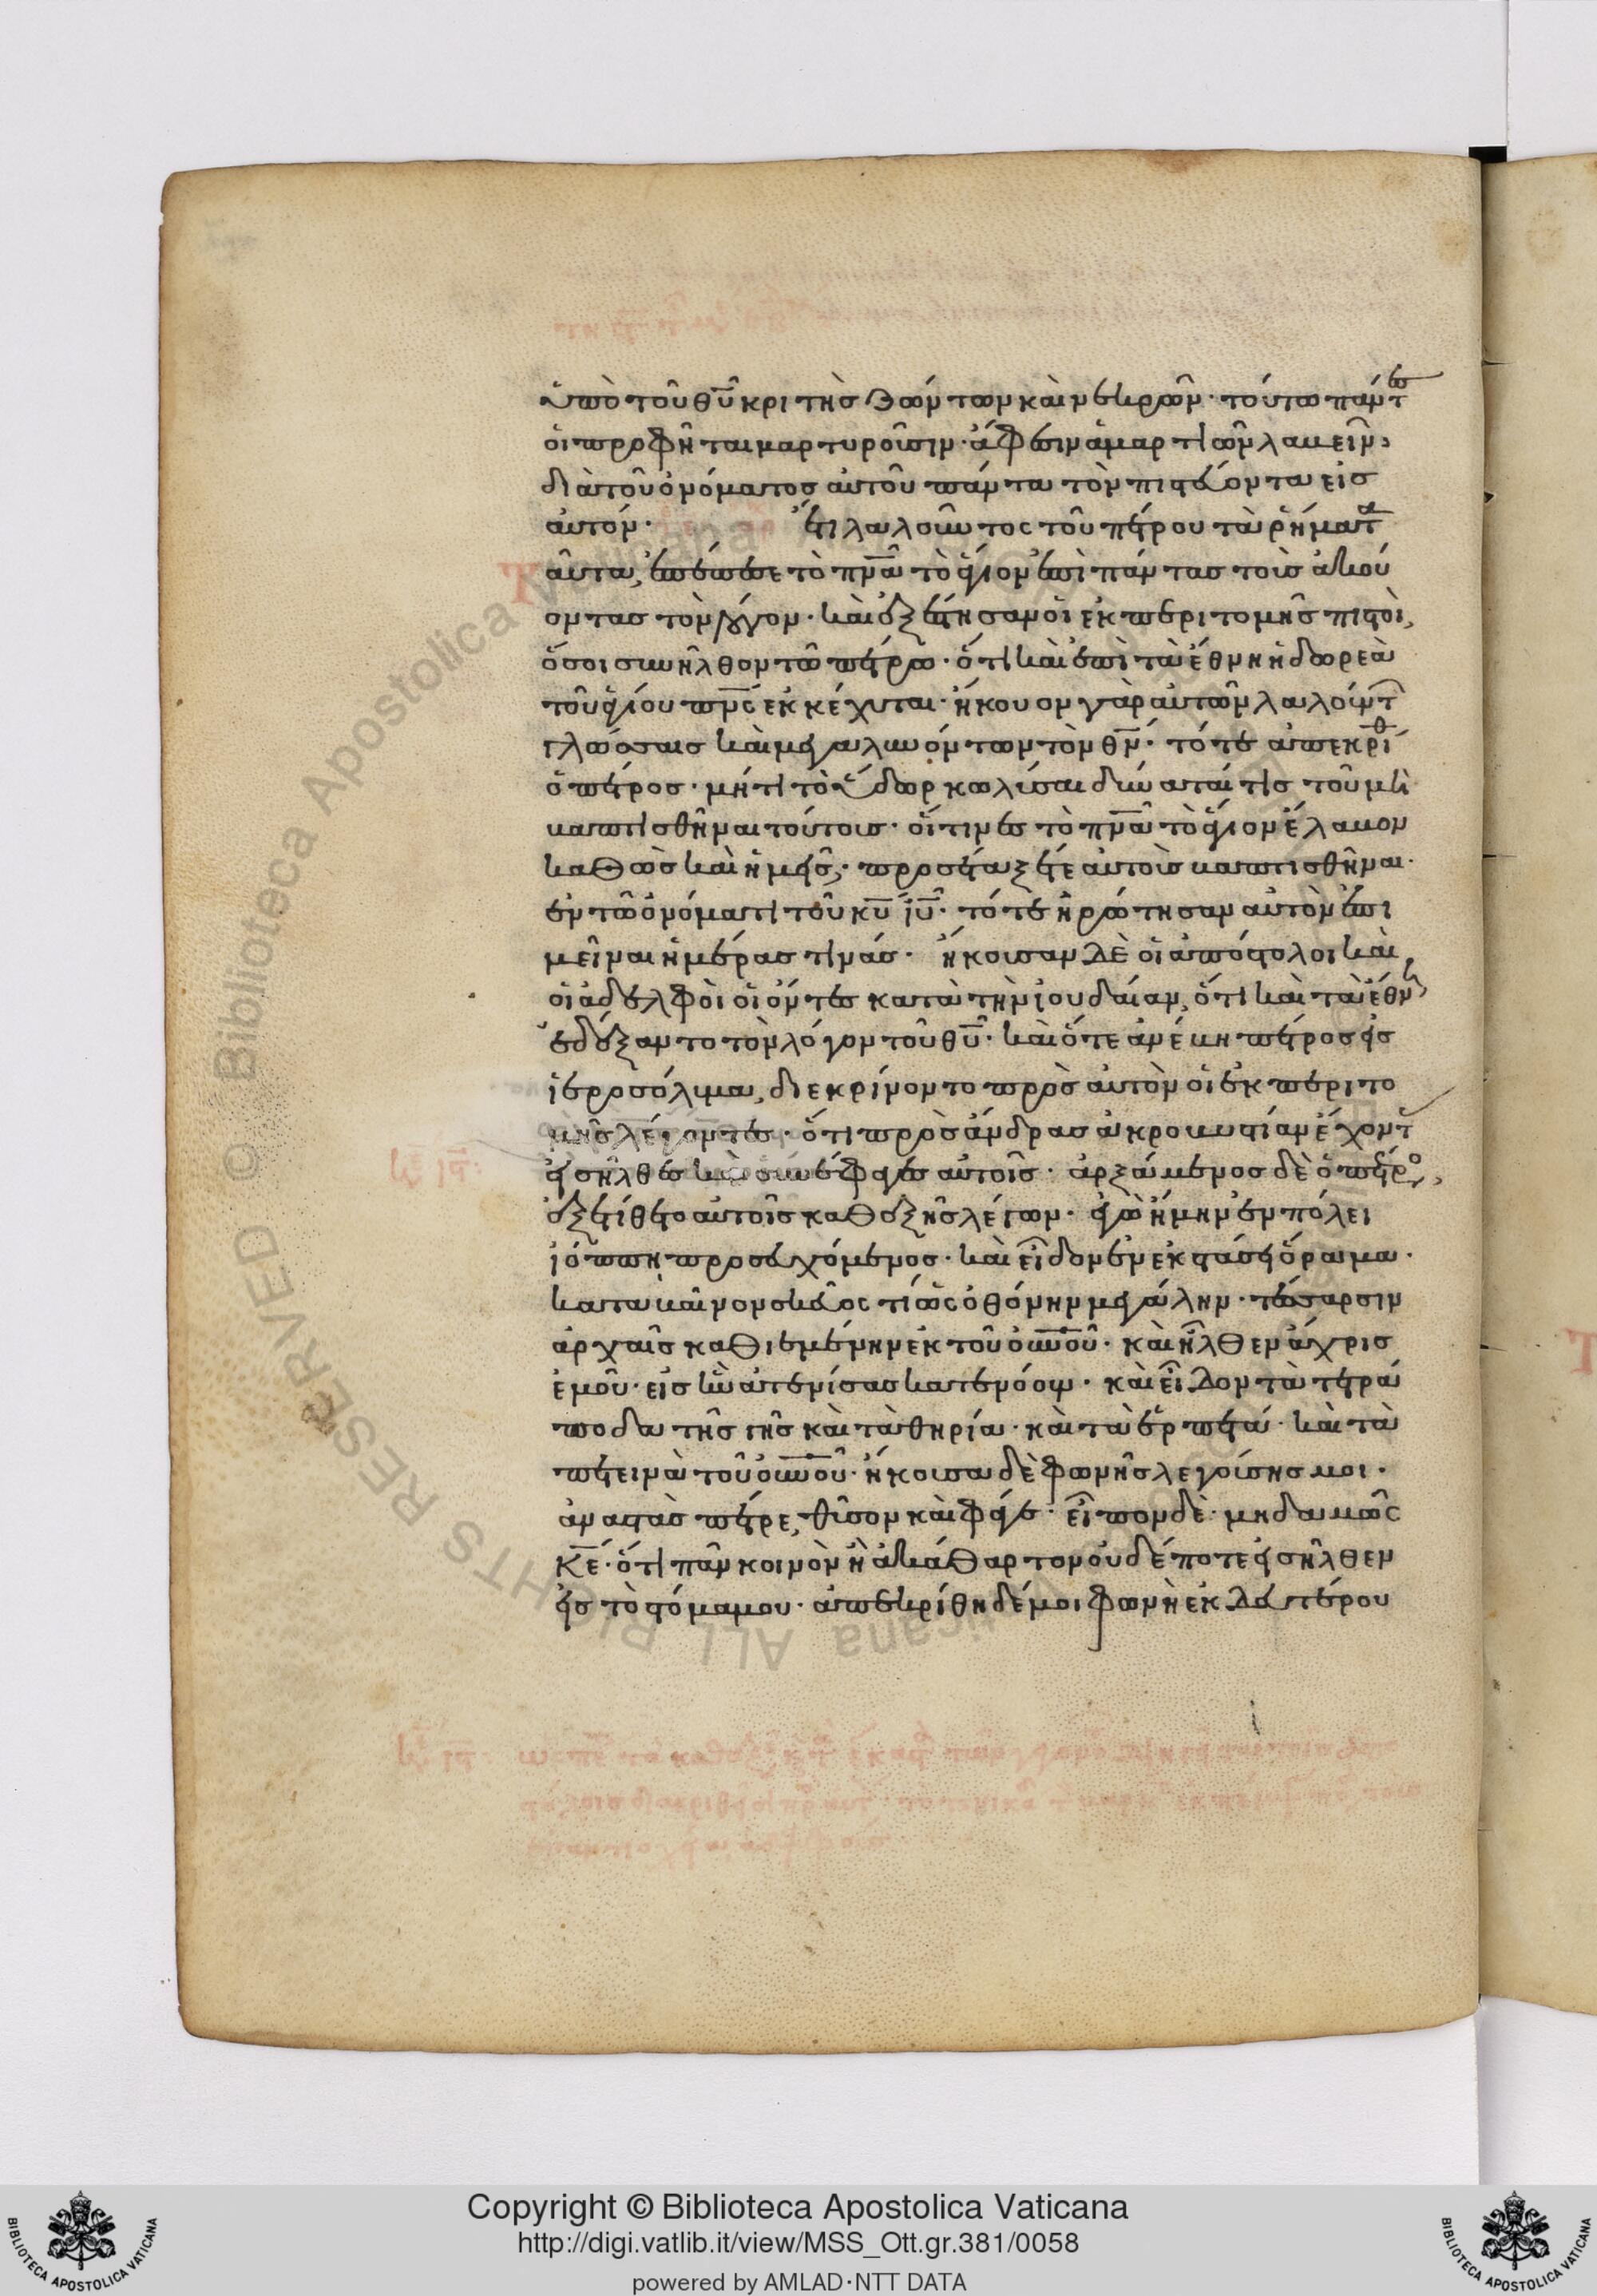 ὑπὸ τοῦ θῦ κριτὴς ζώντων καὶ νεκρῶν· τούτω πάντ(ες)
οἱ προφῆται μαρτυροῦσιν· ἄφεσιν ἁμαρτιῶν λαβεῖν
διὰ τοῦ ὀνόματος αὐτοῦ πάντα τὸν πιστεύοντα εἰς
αὐτόν· ἔτι λαλοῦντος τοῦ πέτρου τὰ ῥήματα
ταῦτα, ἐπέπεσε τὸ πνᾶ τὸ ἅγιον ἐπὶ πάντας τοὺς ἀκού
οντας τὸν λόγον· καὶ ἐξέστησαν οἱ ἐκ περιτομῆς πιστοὶ,
ὅσοι συνῆλθον τῶ πέτρω· ὅτι καὶ ἐπὶ τὰ ἔθνη ἡ δωρεὰ
τοῦ ἁγίου πνς ἐκκέχυται· ἤκουον γὰρ αὐτῶν λαλούντ
γλώσσαις καὶ μεγαλυνόντων τὸν θν· τότε ἀπεκρίθ
ὁ πέτρος· μήτι τὸ ὕδωρ κωλύσαι δύναταί τις τοῦ μὴ
βαπτισθῆναι τούτους· οἵτινες τὸ πνᾶ τὸ ἅγιον ἔλαβον
καθὼς καὶ ἡμεῖς· προσέταξέ τε αὐτοὺς βαπτισθῆναι·
ἐν τῶ ὀνόματι τοῦ κυ ιυ· τότε ἠρώτησαν αὐτὸν ἐπι
μεῖναι ἡμέρας τινάς· ἤκουσαν δὲ οἱ ἀπόστολοι καὶ
οἱ ἀδελφοὶ οἱ ὄντες κατὰ τὴν ἰουδαίαν, ὅτι καὶ τὰ ἔθνη
ἐδέξαντο τὸν λόγον τοῦ θυ· καὶ ὅτε ἀνέβη πέτρος εἰς
ἱεροσόλυμα, διεκρίνοντο πρὸς αὐτὸν οἱ ἐκ περιτο
μῆς λέγοντες· ὅτι πρὸς ἄνδρας ἀκροβυστίαν ἔχοντ
εἰσῆλθες καὶ συνέφαγες αὐτοῖς· ἀρξάμενος δὲ ὁ πέτρο
ἐξετίθετο αὐτοῖς καθεξῆς λέγων· ἐγὼ ἤμην ἐν πόλει
ἰόππη προσευχόμενος· καὶ εἶδον ἐν ἐκστάσει ὅραμα·
καταβαῖνον σκεῦος τι ὡς ὀθόνην μεγάλην· τέσσαρσιν
ἀρχαῖς καθιεμένην ἐκ τοῦ οὐνοῦ· καὶ ἦλθεν ἄχρις
ἐμοῦ· εἰς ἣν ἀτενίσας κατενόουν· καὶ εἶδον τὰ τετρά
ποδα τῆς γῆς καὶ τὰ θηρία· καὶ τὰ ἑρπετά· καὶ τὰ
πετεινὰ τοῦ οὐνοῦ· ἤκουσα δὲ φωνῆς λεγούσης μοι·
ἀναστὰς πέτρε, θῦσον καὶ φάγε· εἶπον δὲ· μηδαμῶς
κε· ὅτι πᾶν κοινὸν ἢ ἀκάθαρτον οὐδέποτε εἰσῆλθεν
εἰς τὸ στόμα μου· ἀπεκρίθη δέ μοι φωνὴ ἐκ δευτέρου
Copyright © Biblioteca Apostolica Vaticana
http://digi.vatlib.it/view/MSS_Ott.gr.381/0058
powered by AMLAD·NTT DATA